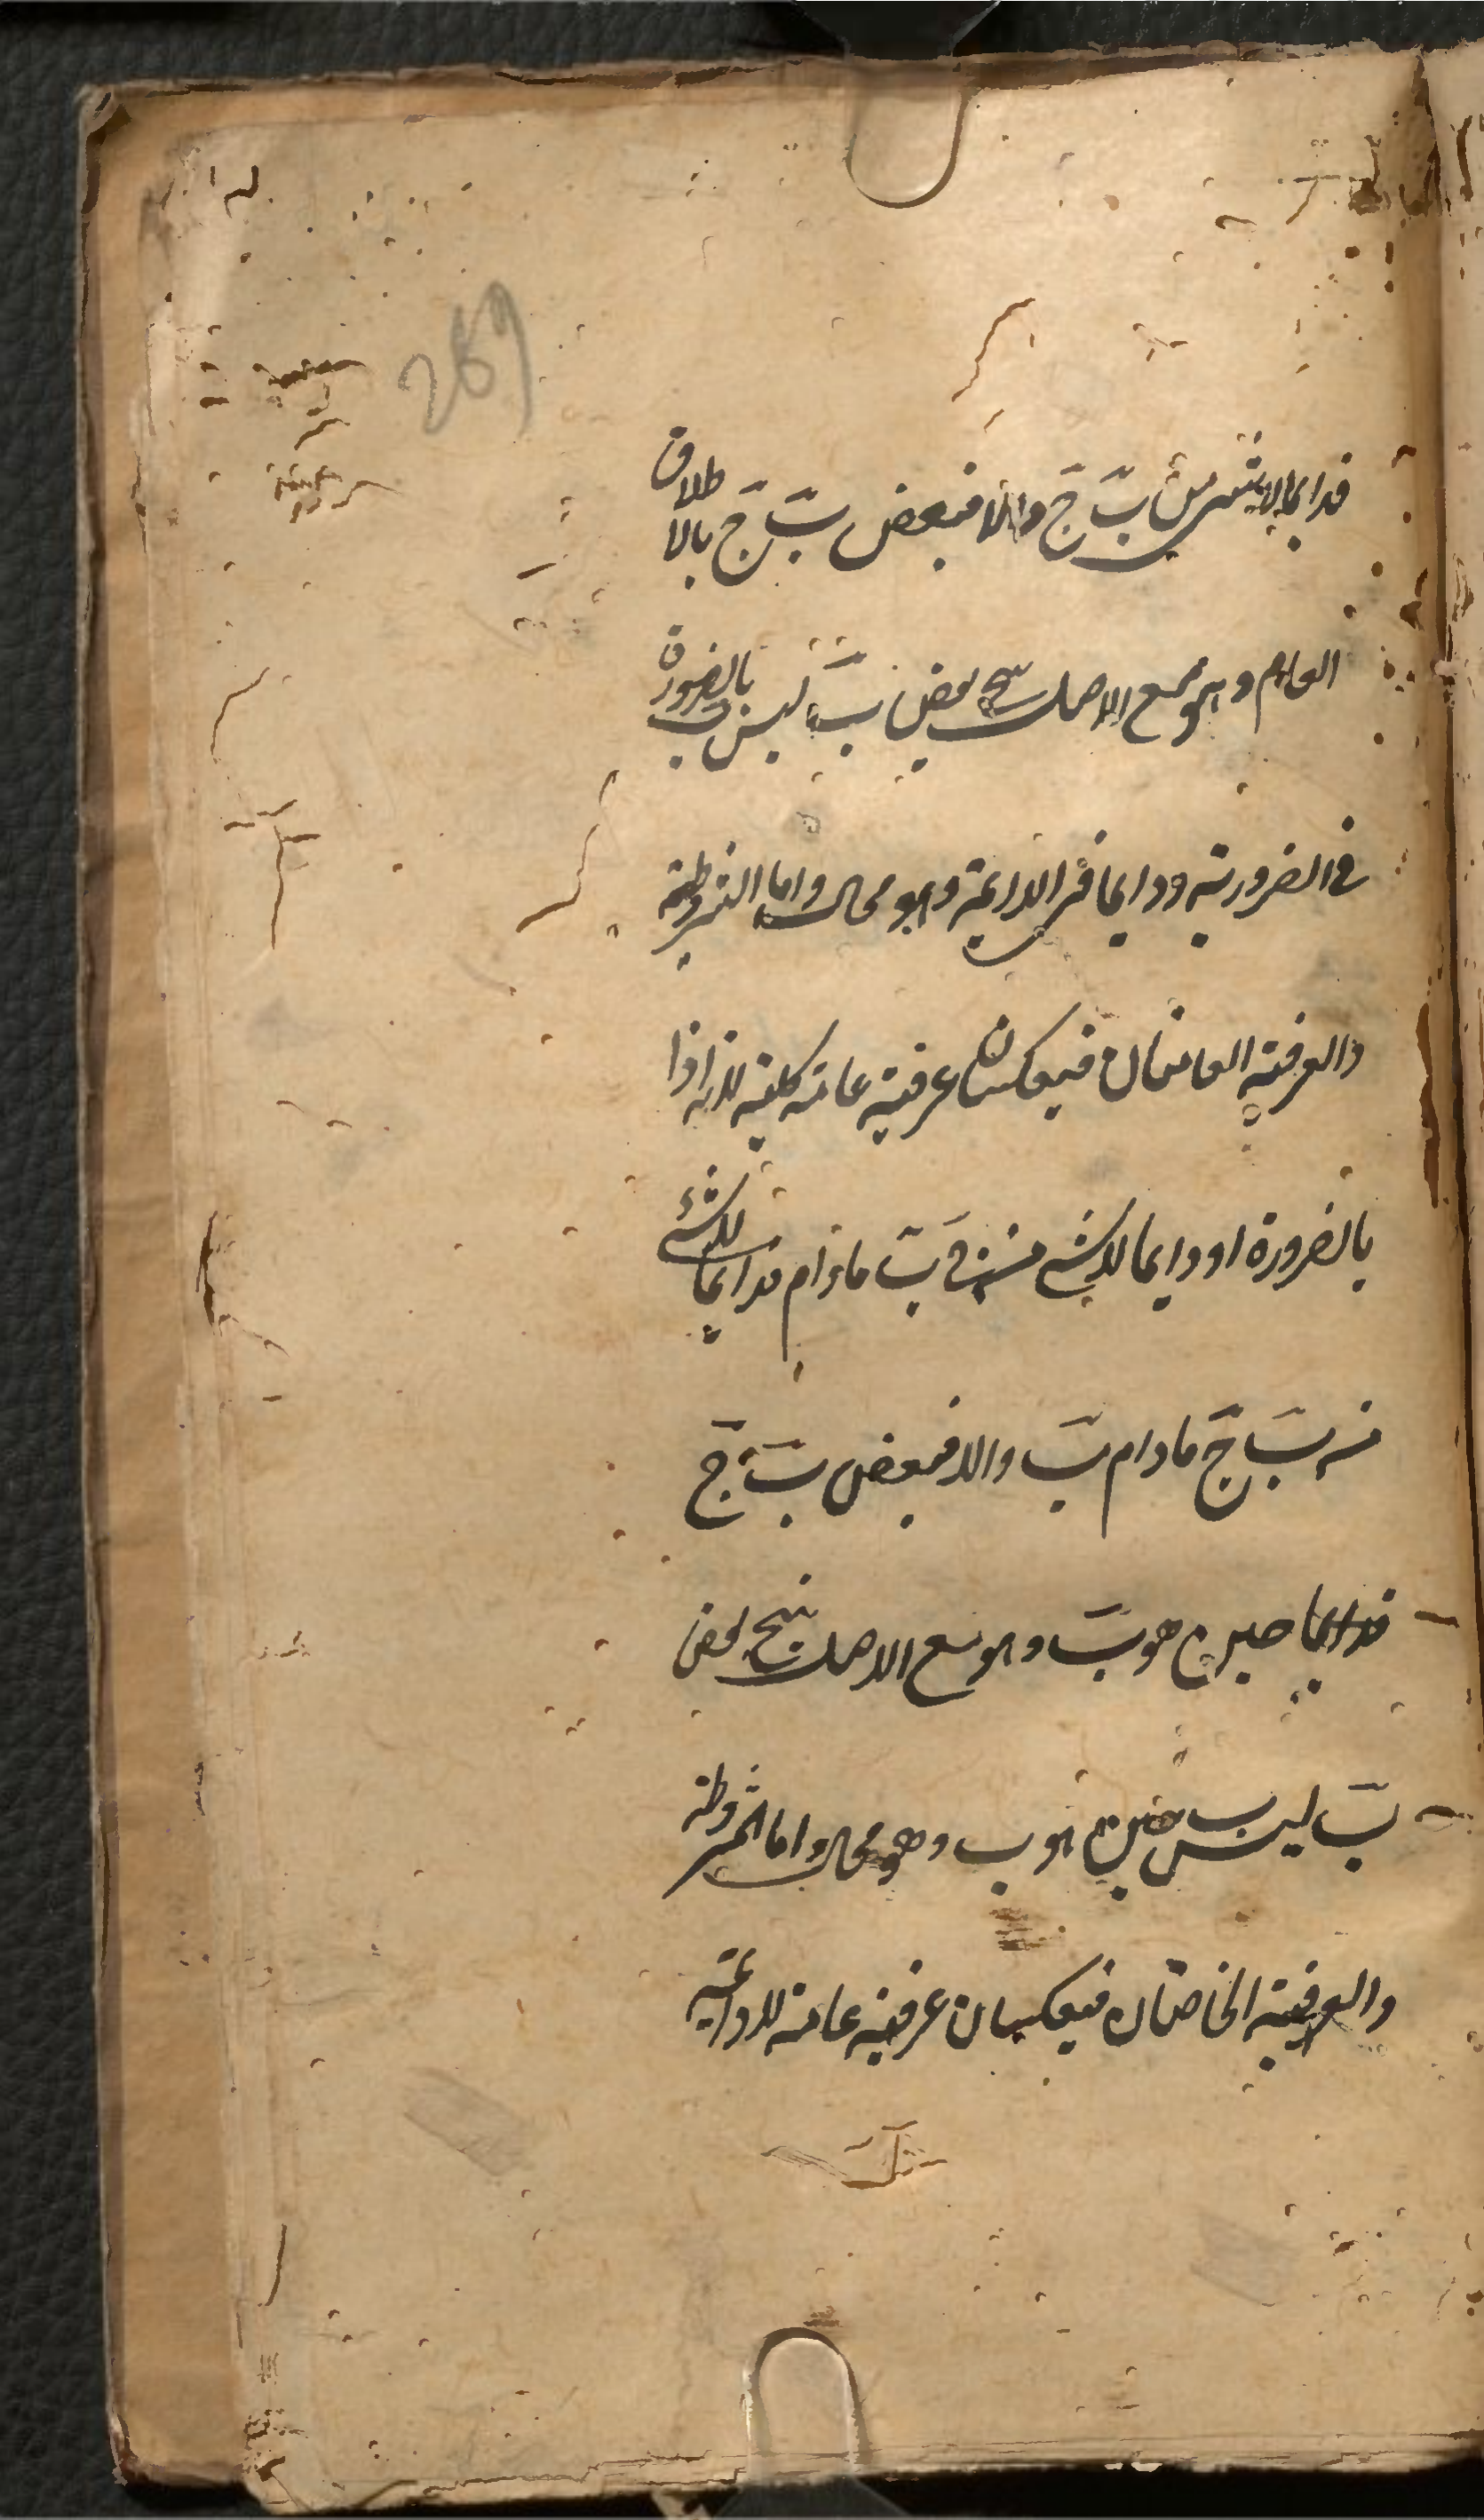 269
فدائما لا شئ من بَ جَ والا فبعض بَ جَ بالاطلاق
العام وهو مع الاصل ينتج بعض بَ ليس ب بالضرورة
فى الضرورية ودائما فى الدائمة وهو محال واما المشروطة
والعرفية العامتان فينعكسان عرفية عامة كلية لانه اذا
بالضرورة او دائما لا شئ من ج بَ ما دام فدائما لا شئ
من بَ جَ ما دام بَ والا فبعض بَ جَ
حين هو بَ وهو مع الاصل ينتج بعض
بَ ليس ب حين هو ب وهو محال واما المشروطة
والعرفية الخاصتان فينعكسان عرفية عامة لا دائمة